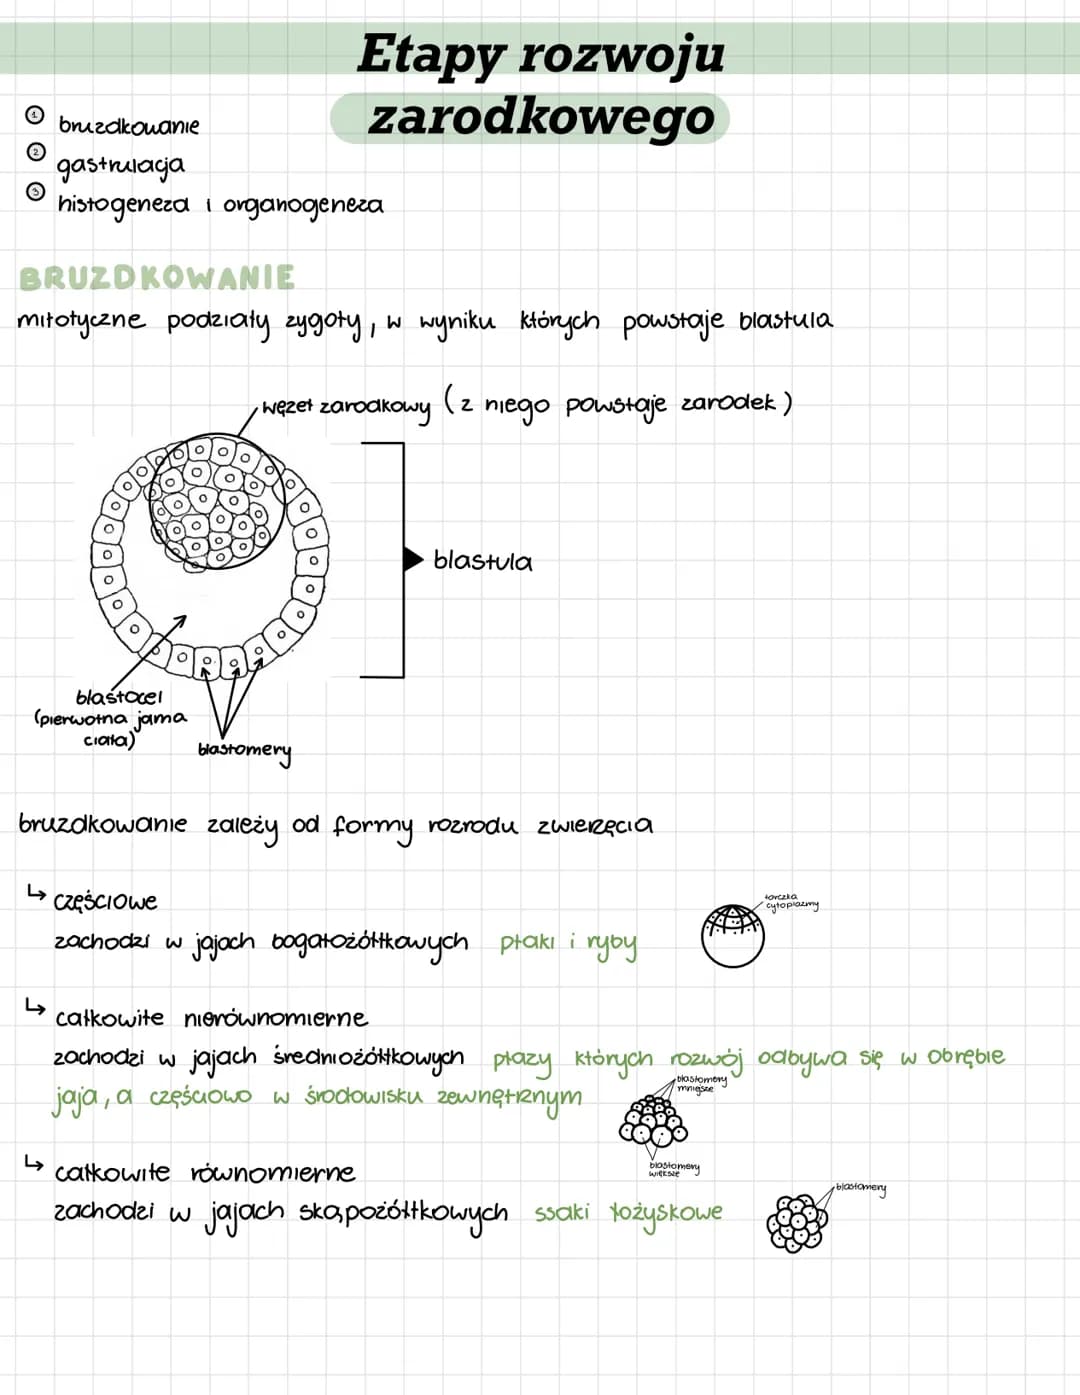 Etapy rozwoju
zarodkowego
1 bruzdkowanie
2 gastrulacja
3 histogeneza i organogeneza
BRUZDKOWANIE
mitotyczne podziały zygoty, w wyniku których powstaje blastula
węzeł zarodkowy (z niego powstaje zarodek)
blastula
blastocel
(pierwotna jama
ciała)
blastomery
bruzdkowanie zależy od formy rozrodu zwierzęcia
↳ częściowe
tarczka
cytoplazmy
zachodzi w jajach bogatożółtkowych ptaki i ryby
↳ całkowite nierównomierne
zachodzi w jajach średniożółtkowych płazy których rozwój odbywa się w obrębie
jaja, a częściowo w środowisku zewnętrznym
blastomery
mniejsze
blastomery
większe
↳ całkowite równomierne
zachodzi w jajach skąpożółtkowych ssaki łożyskowe
blastomery